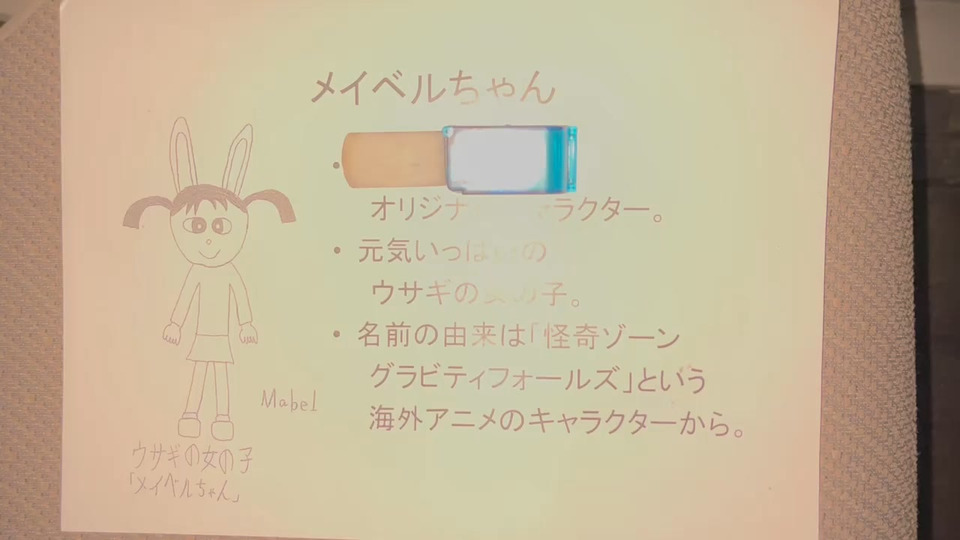 メイベルちゃん
オリジナ ラクター。
元気いっぱ の
ウサギの 子。
名前の由来は「怪奇ゾーン
グラビティフォールズ」という
海外アニメのキャラクターから。
Mabel
ウサギの女の子
「メイベルちゃん」